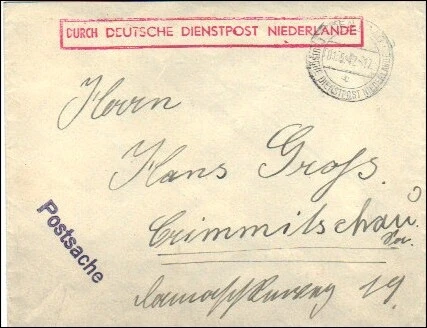 DURCH DEUTSCHE DIENSTPOST NIEDERLANDE
DIENSTPOST NIEDERLANDE
Herrn
Hans Groß.
Crimmitschau
Sa.
19
Postsache